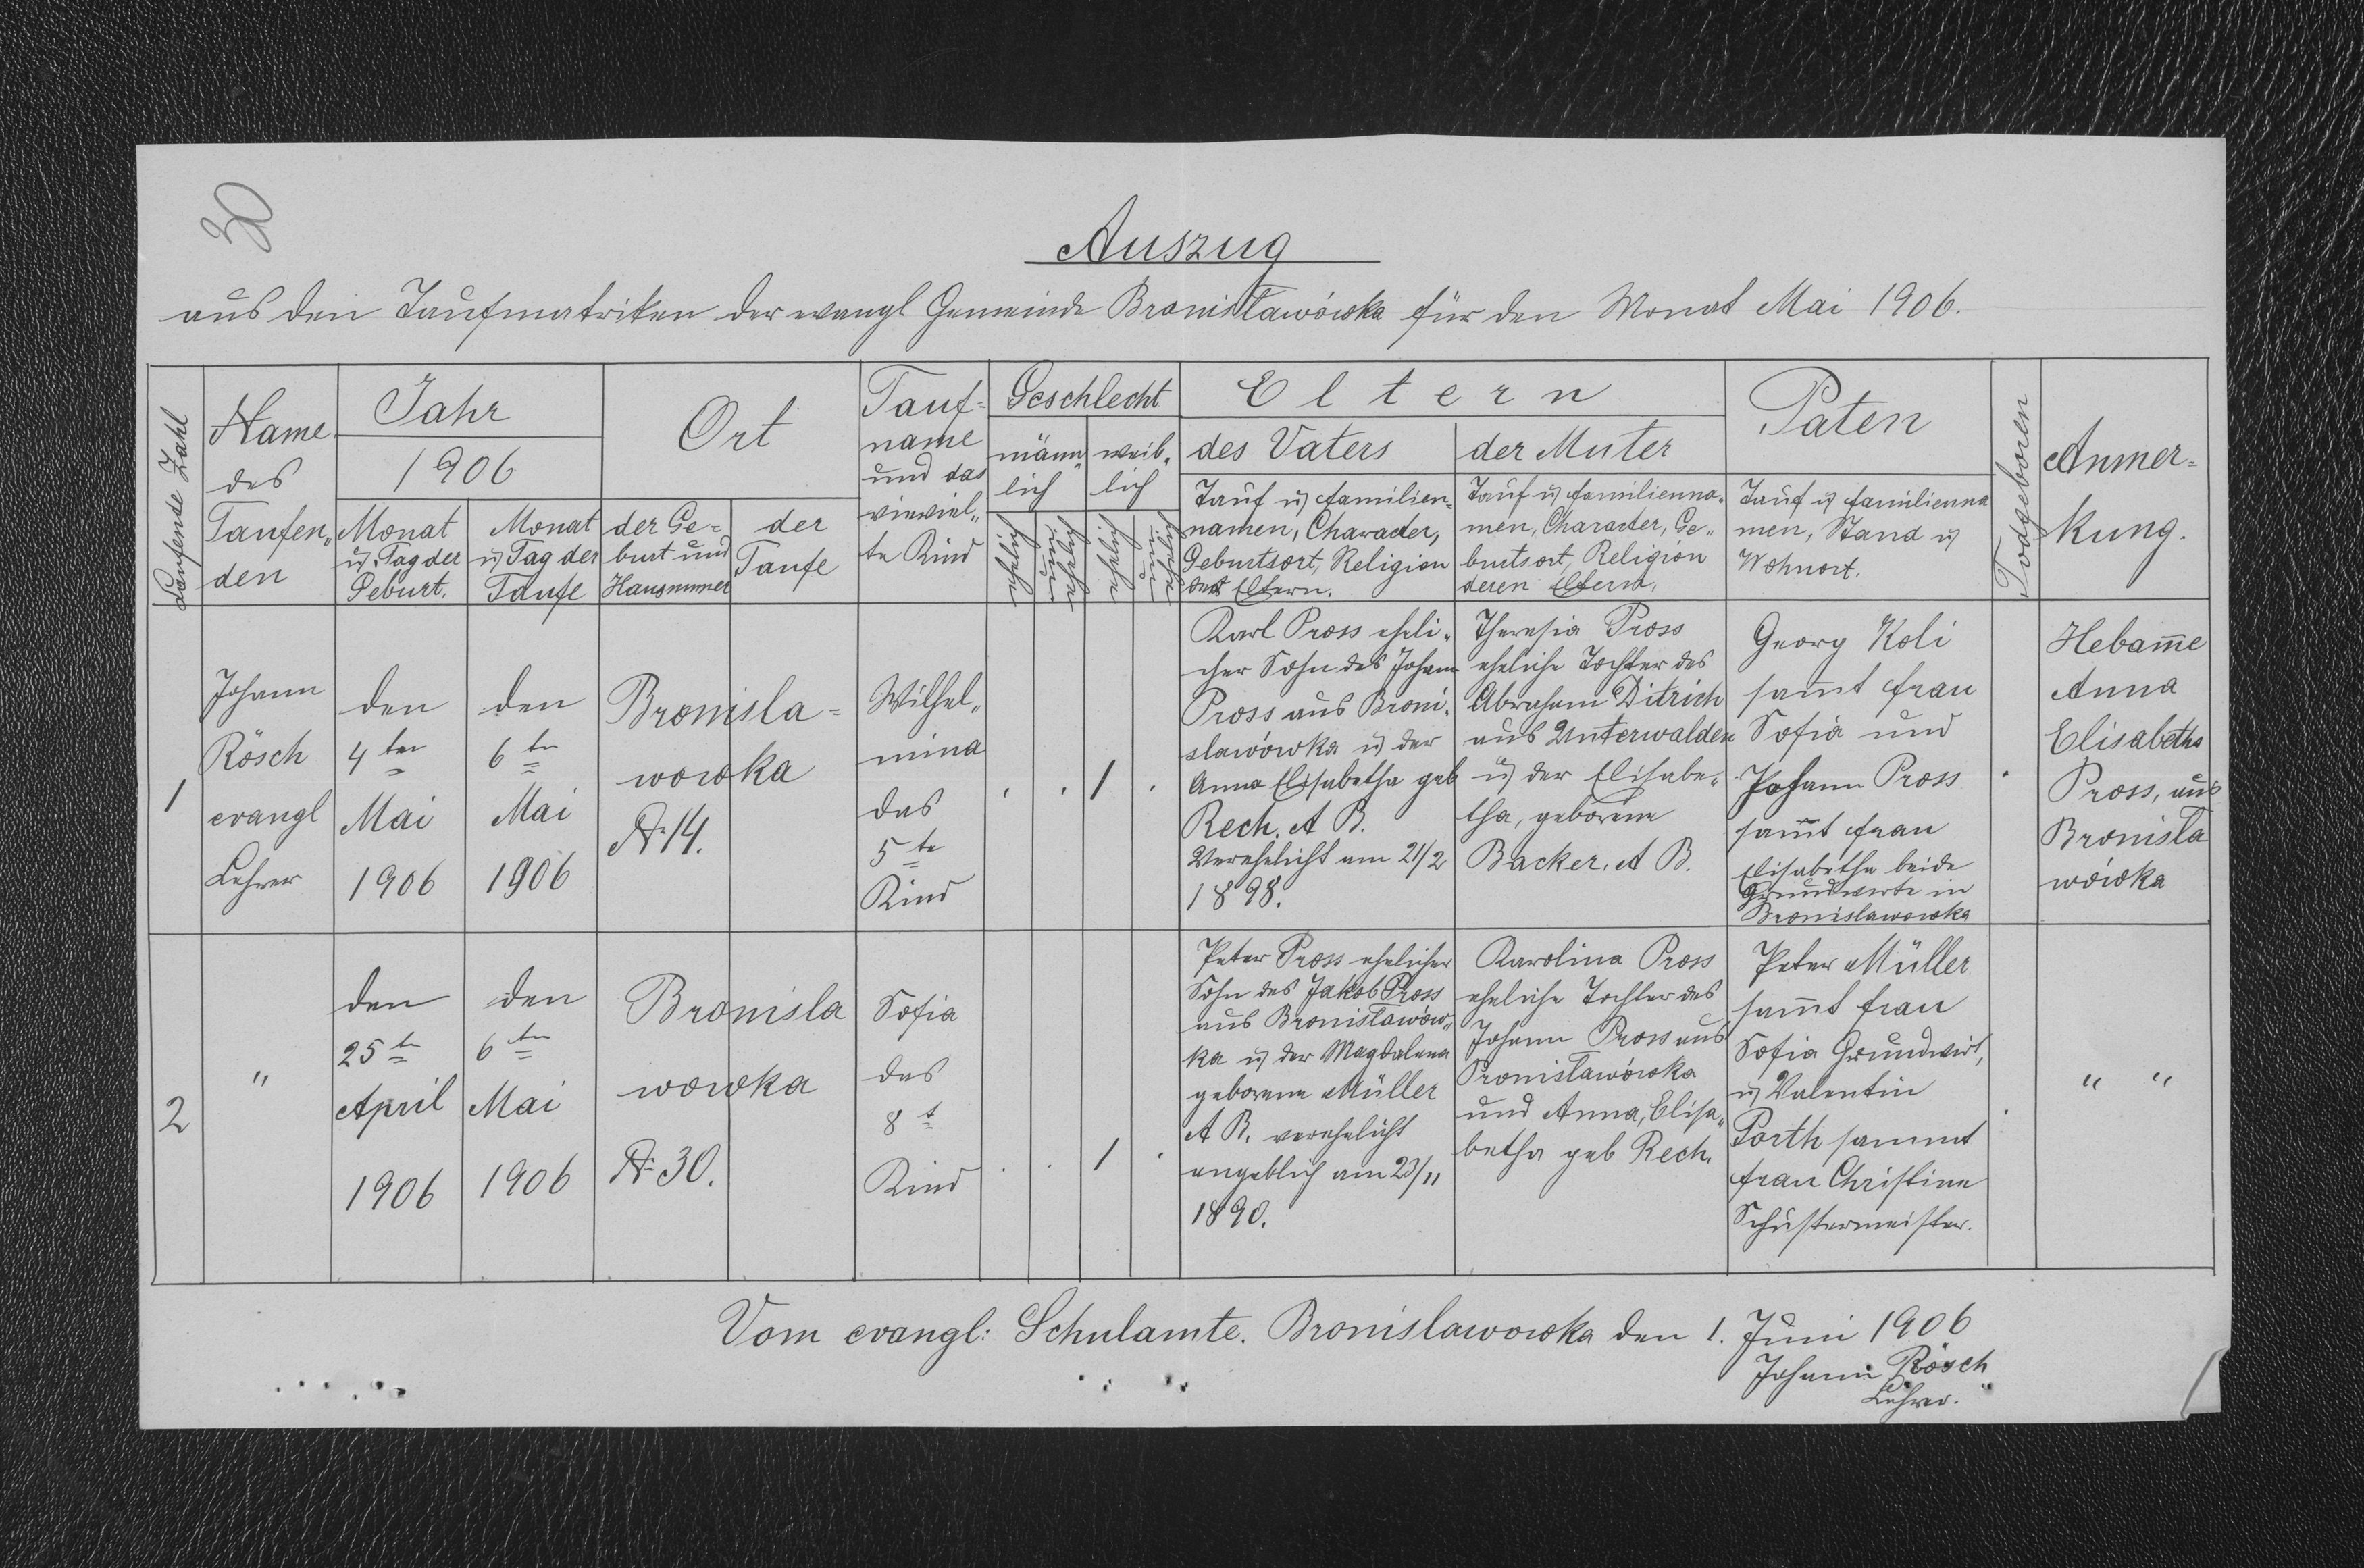 30
Auszug
aus den Taufmatriken der evangl Gemeinde Bronisławówka für den Monat Mai 1906.
Laufende Zahl
Name
des
Taufen„
den
Jahr
1906
Monat
u. Tag der
Geburt.
Monat
u. Tag der
Taufe
Ort
der Ge=
burt und
Hausnumer
der
Taufe
Tauf=
name
und das
wieviel„
te Kind
Geschlecht
männ„
lich
weib„
lich
ehelich
unehe
ehelich
unehe
Eltern
des Vaters
Tauf u. Familien=
namen, Character,
Geburtsort, Religion
der Eltern.
der Muter
Tauf u. Familienna„
men, Character, Ge„
burtsort, Religion
deren Eltern.
Paten
Tauf u. Familienna
men, Stand u.
Wohnort.
Todgeboren
Anmer=
kung.
1
Johann
Rösch
evangl
Lehrer
den
4ten
Mai
1906
den
6ten
Mai
1906
Bronisla=
wowka
Nr 14.
Wilhel„
mina
das
5te
Kind
1
Karl Pross eheli„
cher Sohn des Johann
Pross aus Broni„
slawówka u. der
Anna Elisabetha geb
Rech. A B.
Verehelicht am 21/2
1898.
Theresia Pross
eheliche Tochter des
Abraham Ditrich
aus Unterwalden
u. der Elisabe„
tha, geborene
Backer. A B.
Georg Koli
sam̄t Frau
Sofia und
Johann Pross
sam̄t Frau
Elisabetha beide
Grundwirte in
Bronislawowka
Hebam̄e
Anna
Elisabetha
Pross, aus
Bronisła
wówka
2
"
den
25te
April
1906
den
6ten
Mai
1906
Bronisla
wowka
Nr 30.
Sofia
das
8t
Kind
1
Peter Pross ehelicher
Sohn des Jakob Pross
aus Bronisławów„
ka u. der Magdalena
geborene Müller
A B. verehelicht
angeblich am 23/11
1890.
Karolina Pross
eheliche Tochter des
Johann Pross aus
Pronisławówka
und Anna, Elisa„
betha geb Rech.
Peter Müller
sam̄t Frau
Sofia Grundwirt,
u. Valentin
Porth sammt
Frau Christine
Schustermeister.
" "
Vom evangl: Schulamte. Bronislawowka den 1. Juni 1906
Johann Rösch
Lehrer.